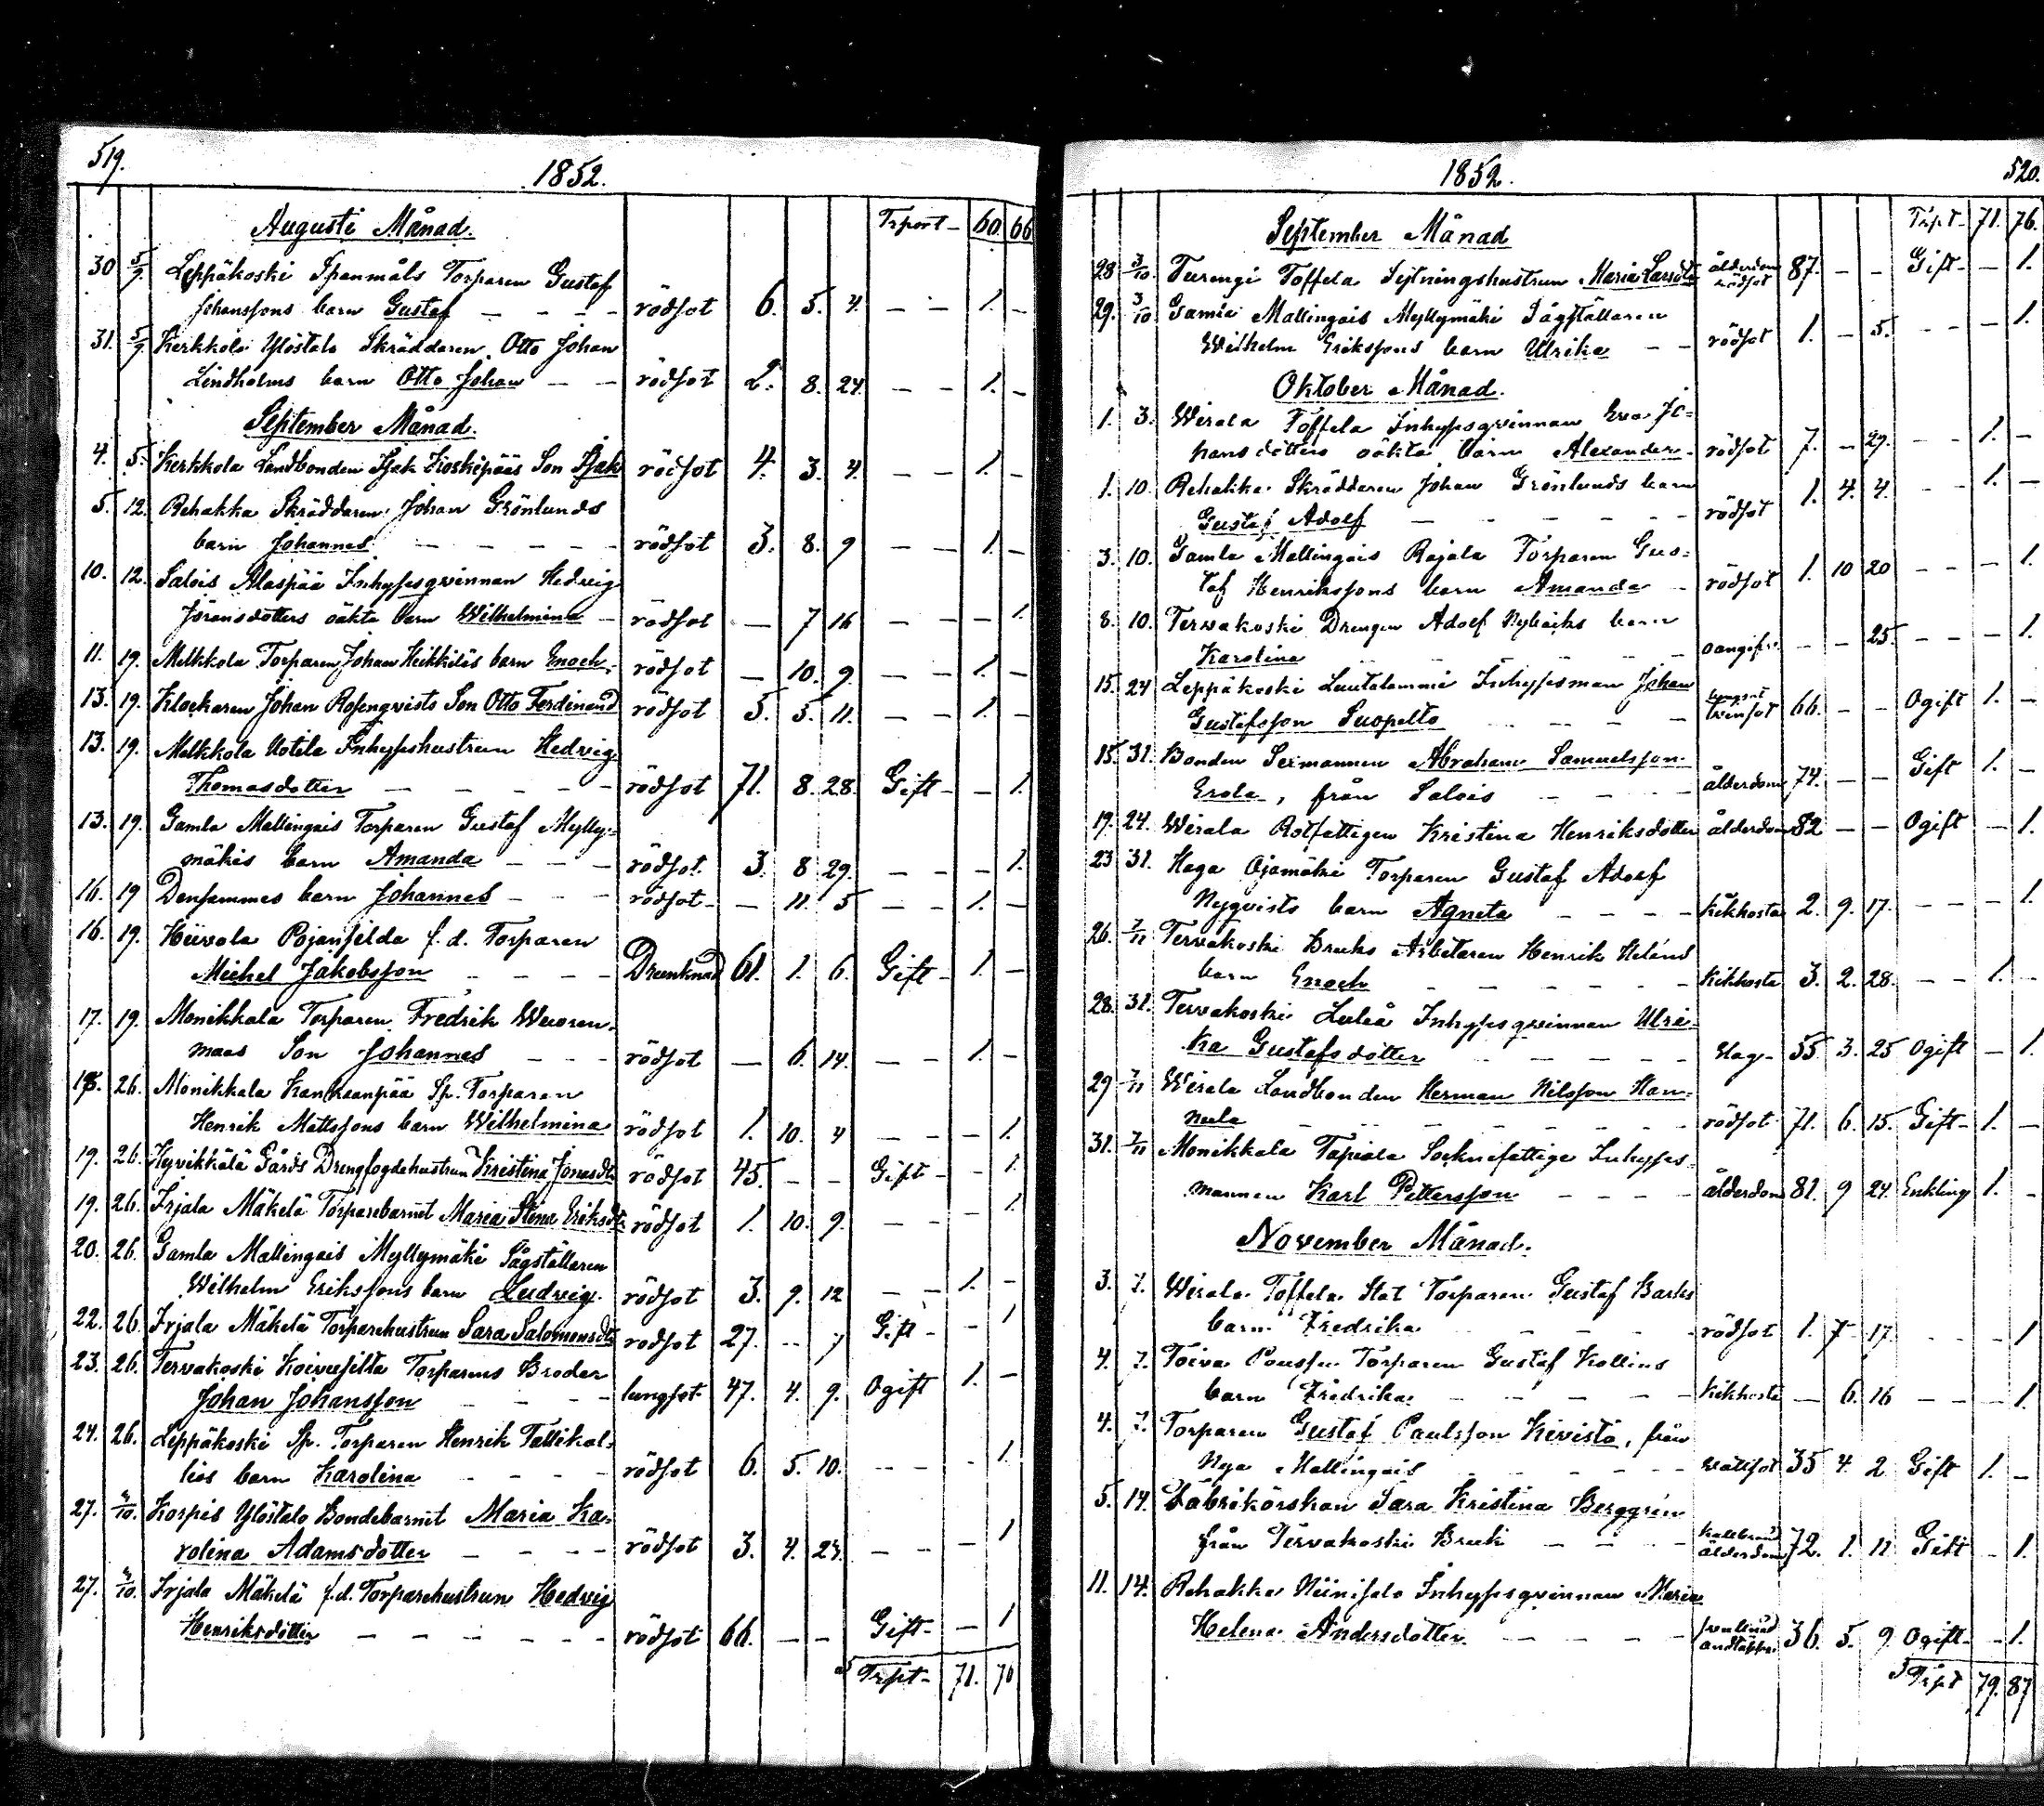 519.
1852.
Augusti Månad. Trport- 60. 66
30 5/9 Leppäkoski Spanmåls Torparen Gustaf
Johanssons barn Gustaf - - - - rödsot 6. 5. 4. - - 1. -
31. 5/9 Kerkkola Ylöstalo Skräddaren Otto Johan
Lindholms barn Otto Johan - - rödsot 2. 8. 24. - - 1. -
September Månad.
4. 5. Kerkkola Landbonden Isak Son Isak rödsot 4. 3. 4. - - 1. -
5. 12. Rehakka Skräddaren Johan Grönlunds
barn Johannes - - - - - rödsot 3. 8. 9 - - 1. -
10. 12. Salois Alaspää Inhysesqvinnan Hedvig
Göransdotters oäkta barn Wilhelmina - rödsot - 7 16 - - - 1.
11. 19. Melkkola Torparen Johan Heikkiläs barn Enoch. rödsot - 10. 9. - - 1. -
13. 19. Klockaren Johan Rosenqvists Son Otto Ferdinand rödsot 5. 5. 11. - - 1. -
13. 19. Melkkola Uotila Inhyseshustrun Hedvig
Thomasdotter - - - - - rödsot 71. 8. 28. Gift - - 1.
13. 19. Gamla Mallingais Torparen Gustaf Mylly-
mäkis barn Amanda - - - rödsot. 3. 8 29. - - - 1.
16. 19 Densammes barn Johannes - - - rödsot - - 11. 5 - - 1. -
16. 19. Hiivola Pojansilda f. d. Torparen
Michel Jakobsson - - - - Drunknad 61. 1. 6. Gift - 1. -
17. 19. Monikkala Torparen Fredrik Wuoren-
maas Son Johannes - - - rödsot - 6. 14. - - 1. -
18. 26. Monikkala Kankaanpää Sp. Torparen
Henrik Mattssons barn Wilhelmina rödsot 1. 10. 4 - - - 1.
19. 26. Hyvikkälä Gårds Drengfogdehustrun Kristina Jonasdtr rödsot 45. - - Gift - - 1.
19. 26. Irjala Mäkelä Torparebarnet Maria Stina Eriksdtr rödsot 1. 10. 9. - - - 1.
20. 26. Gamla Mallingais Myllymäki Sågställaren
Wilhelm Erikssons barn Ludvig. rödsot 3. 9. 12 - - 1. -
22. 26. Irjala Mäkelä Torparehustrun Sara Salomonsdtr rödsot 27. - - 7 Gift - - 1
23. 26. Tervakoski Koivusilta Torparens Broder
Johan Johansson - - - lungsot 47. 4. 9. Ogift 1. -
24. 26. Leppäkoski Sp. Torparen Henrik Tallikal-
lios barn Karolina - - - - rödsot 6. 5. 10. - - - 1.
27. 3/10. Korpis Ylöstalo Bondebarnet Maria Ka-
rolina Adamsdotter - - - - rödsot 3. 4. 24. - - - 1
27. 3/10. Irjala Mäkelä f.d. Torparehustrun Hedvig
Henriksdotter - - - - - - rödsot 66. - - Gift - - 1
Trpt- 71. 76
1852. 520.
September Månad Trpt- 71. 76.
28 3/10. Turengi Toffela Sytningshustrun Maria Larsdtr ålderdom rödsot 87. - - Gift - - 1.
29. 3/10. Gamla Mallingais Myllymäki Sågställaren
Wilhelm Erikssons barn Ulrika - - rödsot 1. - 5. - - - 1.
Oktober Månad.
1. 3. Wirala Toffela Inhysesqvinnan Eva Jo-
hansdotters oäkta barn Alexander - rödsot 7. - 29. - - 1. -
1. 10. Rehakka Skräddaren Johan Grönlunds barn
Gustaf Adolf - - - - - rödsot 1. 4. 4. - - 1. -
3. 10. Gamla Mallingais Rajala Torparen Gus-
taf Henrikssons barn Amanda - rödsot 1. 10 20 - - - 1.
8. 10. Tervakoski Drengen Adolf Nybäcks barn
Karolina - - - - - oangifv. - - 25. - - - 1.
15. 24 Leppäkoski Lautalammi Inhysesman Johan
Gustafsson Suopelto - - - - 66. - - Ogift 1. -
15. 31. Bonden Sexmannen Abraham Samuelsson
Erola, från Salois - - - ålderdom 74. - - Gift 1. -
19. 24. Wirala Rotfattigen Kristina Henriksdotter ålderdom 82 - - Ogift - 1.
23 31. Haga Ojamäki Torparen Gustaf Adolf
Nyqvists barn Agneta - - - - Kikhosta 2. 9. 17. - - - 1.
26. 7/11 Tervakoski Bruks Arbetaren Henrik Heléns
barn Enoch - - - - - - Kikhosta 3. 2. 28. - - 1. -
28. 31. Tervakoski Luleå Inhysesqvinnan Ulri-
ka Gustafsdotter - - - - - Slag- 55 3. 25 Ogift - 1.
29 7/11 Wirala Landbonden Herman Nilsson Han-
nula - - - - - - - rödsot 71. 6. 15. Gift- 1. -
31. 7/11 Monikkala Tapiola Socknefattige Inhyses-
mannen Karl Pettersson - - - - ålderdom 81. 9 24. Enkling 1. -
November Månad.
3. 7. Wirala Toffela Stat Torparen Gustaf Barks
barn Fredrika - - - - - rödsot 1. 7 17. - - - 1
4. 7. Toiva Torparen Gustaf Kollins
barn Fredrika. - - - - - Kikhosta - 6. 16 - - - 1.
4. 7. Torparen Gustaf Paulsson Kivistö, från
Nya Mallingais - - - - - vattsot 35 4. 2 Gift 1. -
5. 14. Fabrikörskan Sara Kristina Berggrén
från Tervakoski Bruk - - - kallbrand ålderdom 72. 1. 11 Gift - 1.
11. 14. Rehakka Niinisalo Inhysesqvinnan Maria
Helena Andersdotter. - - - - andtäppa 36. 5. 9 Ogift - - 1.
Trpt 79. 87